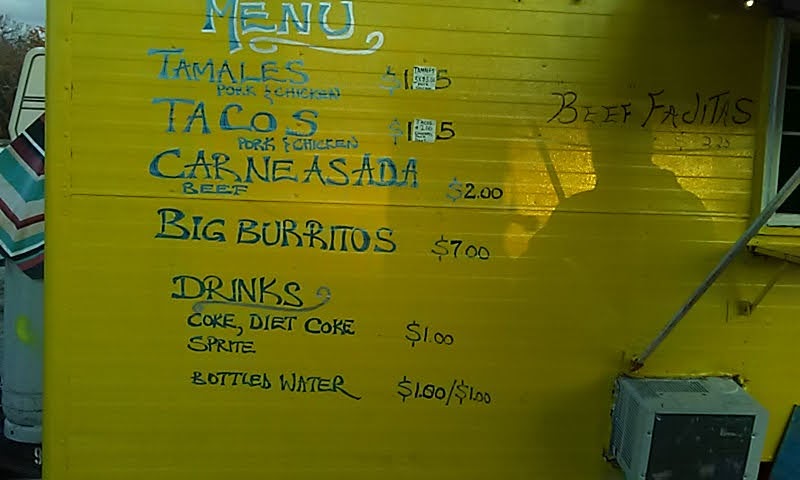 MENU
TAMALES $1 5
PORK & CHICKEN
TACOS $1 5
PORK & CHICKEN
CARNE ASADA
BEEF $2.00
BIG BURRITOS $7.00
DRINKS
COKE, DIET COKE $1.00
SPRITE
BOTTLED WATER $1.80/$1.00
BEEF FAJITAS